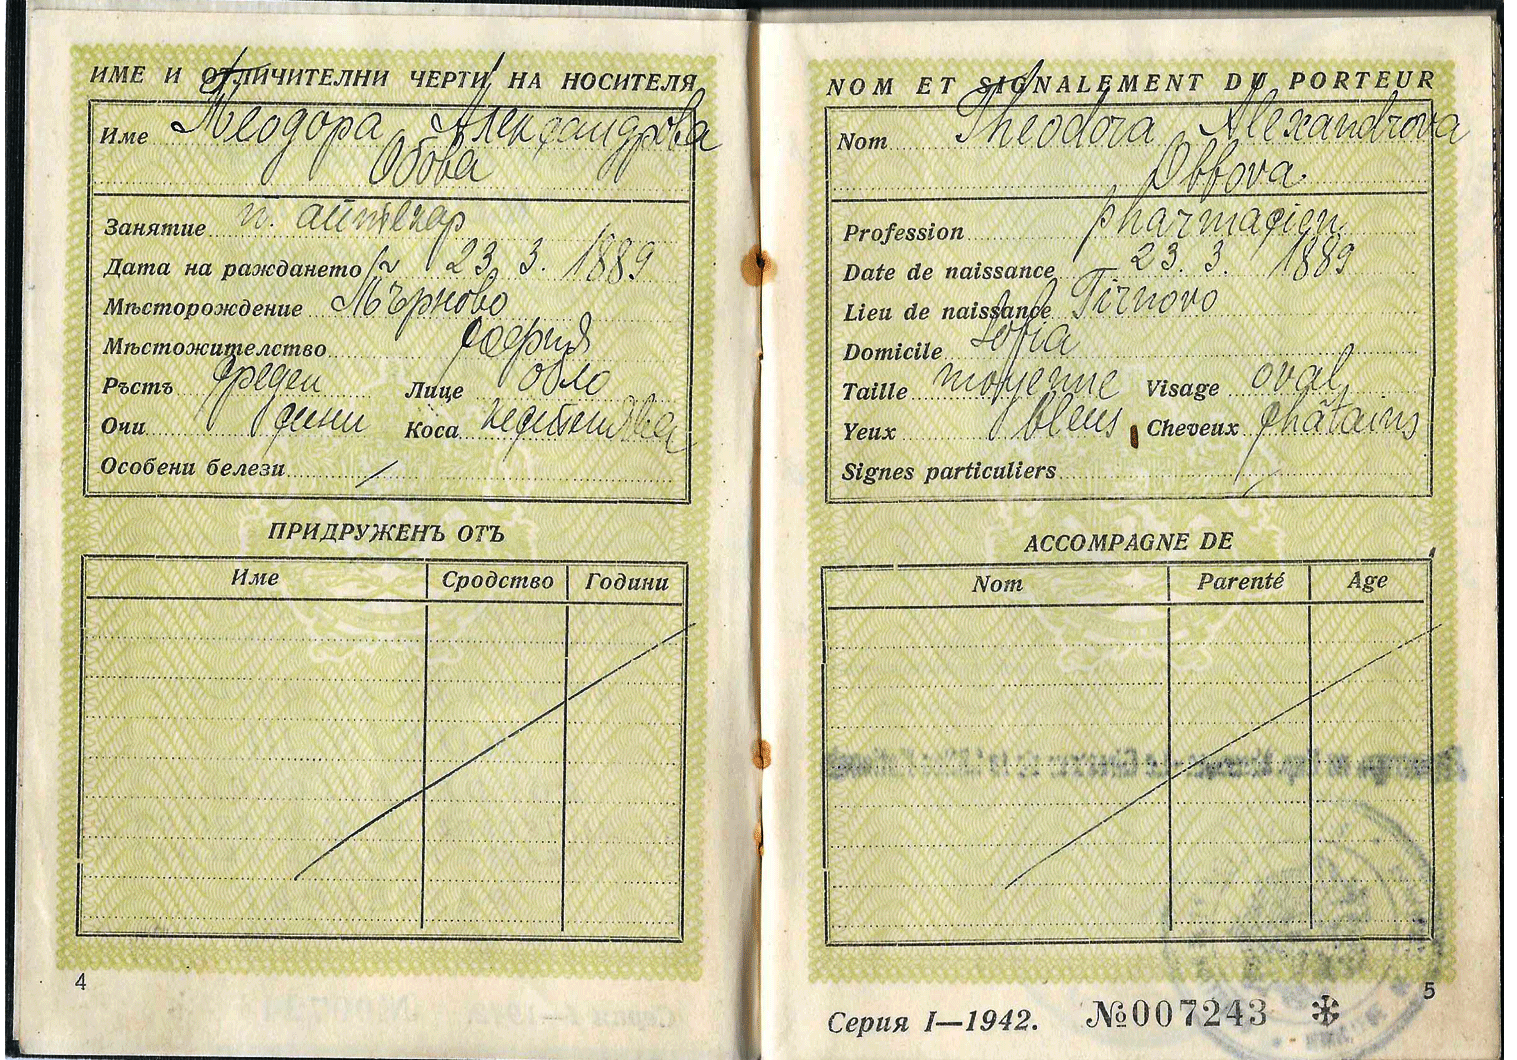 ИМЕ И ОТЛИЧИТЕЛНИ ЧЕРТИ НА НОСИТЕЛЯ
Име Теодора Александрова
Обова
Занятие п. аптекар
Дата на раждането 23. 3. 1889
Мѣсторождение Търново
Мѣстожителство София
Ръстъ среден Лице обло
Очи сини Коса кестенява
Особени белези /
ПРИДРУЖЕНЪ ОТЪ
Име Сродство Години
4
NOM ET SIGNALEMENT DU PORTEUR
Nom Theodora Alexandrova
Obbova
Profession pharmacien
Date de naissance 23. 3. 1889
Lieu de naissance Tirnovo
Domicile Sofia
Taille moyenne Visage oval
Yeux bleus Cheveux châtains
Signes particuliers /
ACCOMPAGNE DE
Nom Parenté Age
5
Серия I—1942. №007243